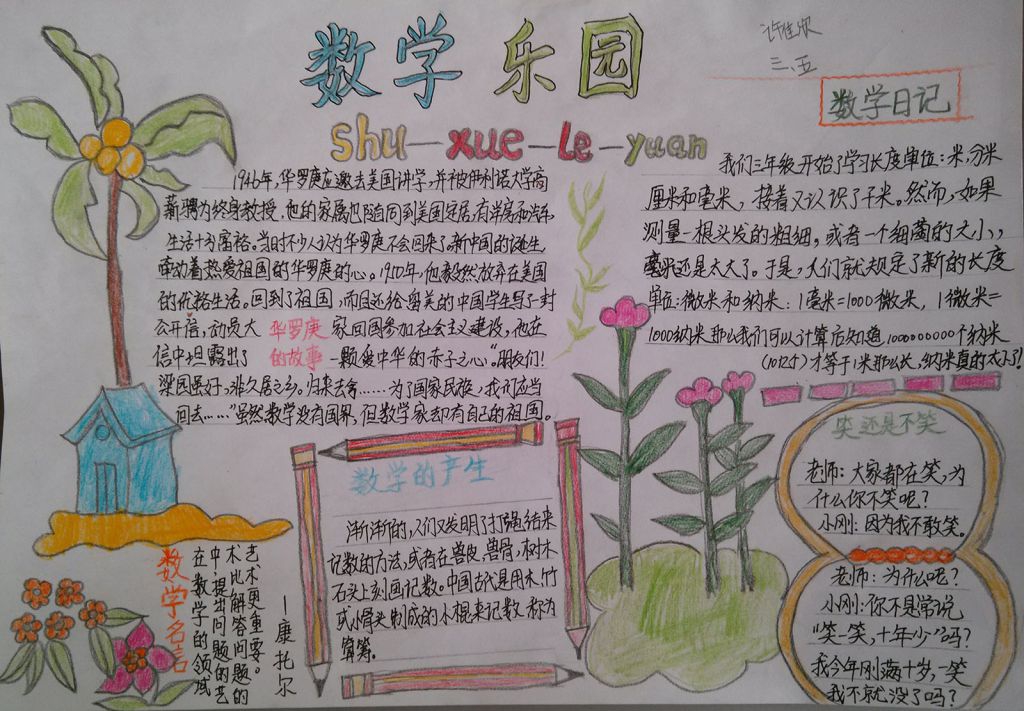 数学乐园
shu—xue—Le—yuan
许佳欣
三、五
数学日记
1946年,华罗庚应邀去美国讲学,并被伊利诺大学高
薪聘为终身教授。他的家属也随同到美国定居,有洋房和汽车,
生活十分富裕。当时不少人认为华罗庚不会回来了,新中国的诞生,
牵动着热爱祖国的华罗庚的心。1950年,他毅然放弃在美国
的优裕生活。回到了祖国,而且还给留美的中国学生写了封
公开信,动员大 华罗庚 家回国参加社会主义建设,他在
信中坦露出了 的故事 一颗爱中华的赤子之心“。朋友们!
梁园虽好,非久居之乡。归来去兮……为了国家民族,我们应当
回去……”虽然数学没有国界,但数学家却有自己的祖国。
我们三年级开始了学习长度单位:米,分米
厘米和毫米,接着又认识了千米。然而,如果
测量一根头发的粗细,或者一个细菌的大小,
毫米还是太大了。于是,人们就规定了新的长度
单位:微米和纳米:1毫米=1000微米,1微米=
1000纳米那么我们可以计算后知道1000000000个纳米
(10亿个)才等于1米那么长,纳米真的太小了!
数学的产生
渐渐的,人们又发明了打绳结来
记数的方法,或者在兽皮,兽骨,树木
石头上刻画记数。中国古代是用木、竹
或骨头制成的小棍来记数,称为
算筹。
数学名言
在数学的领域
中,提出问题的艺
术比解答问题的
艺术更重要。
—康托尔
笑还是不笑
老师:大家都在笑,为
什么你不笑呢?
小刚:因为我不敢笑。
老师:为什么呢?
小刚:你不是常说
“笑一笑,十年少”吗?
我今年刚满十岁,一笑
我不就没了吗?